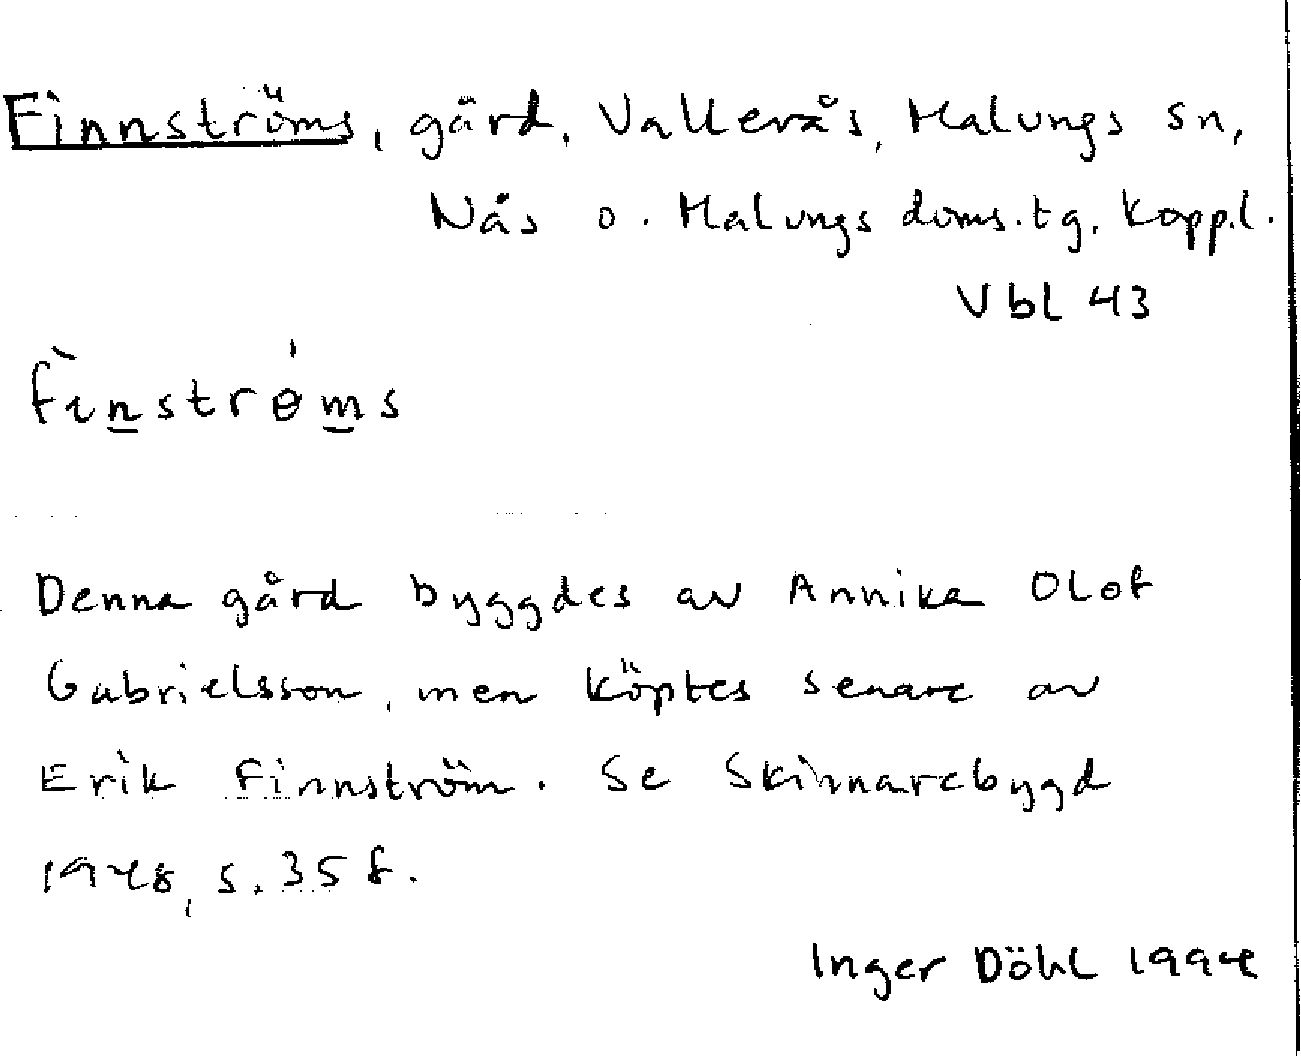 Finnströms, gård, Vallerås, Malungs sn,
Nås o. Malungs doms.tg. Koppl.
Vbl 43
fìnstrɵ́ms
Denna gård byggdes av Annika Olof
Gabrielsson, men köptes senare av
Erik Finnström. Se Skinnarebygd
1948, s. 35 f.
Inger Döhl 1994